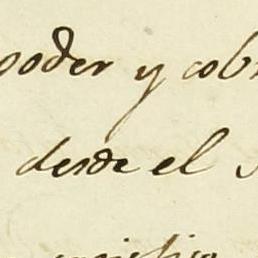 poder y cob
desde el